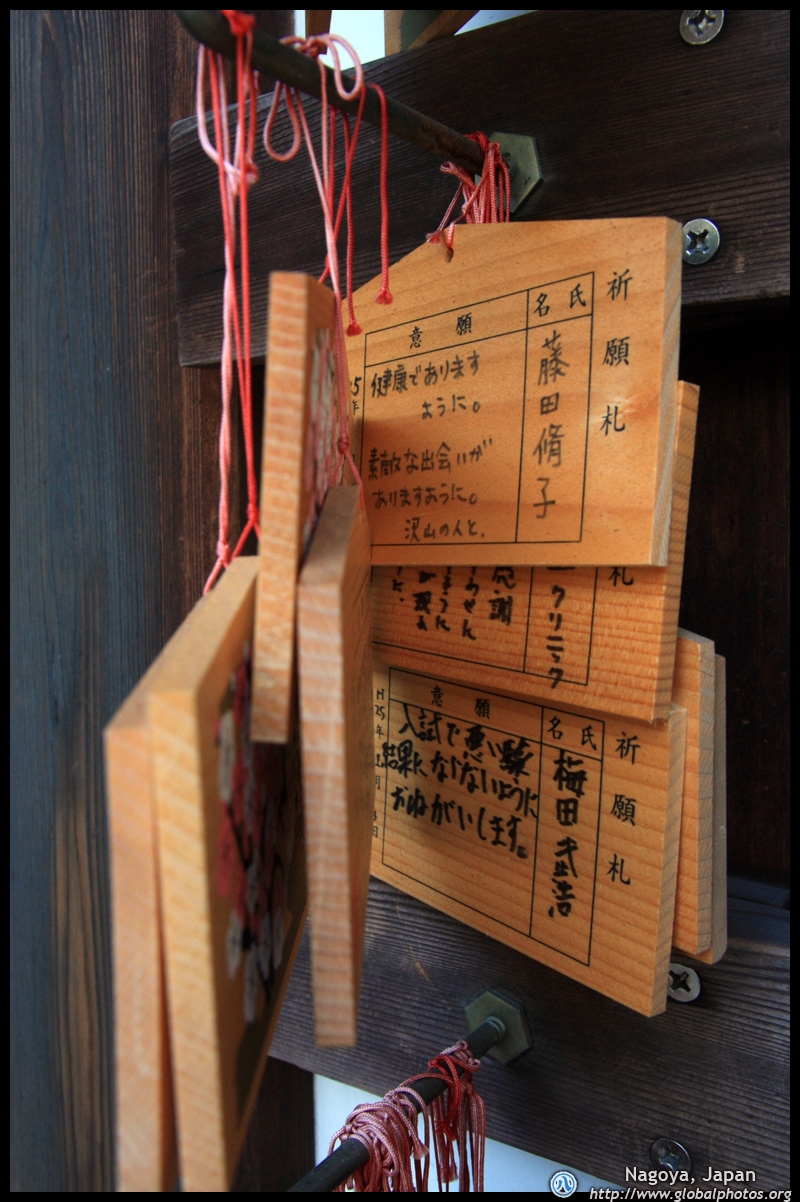 祈願札
氏名
藤田脩子
願意
健康であります
ように。
素敵な出会いが
ありますように。
沢山の人と。
25年
札
クリニック
感謝
祈願札
氏名
梅田
願意
入試で悪い
結果にならないように
おねがいします。
H25年
月
日
Nagoya, Japan
http://www.globalphotos.org